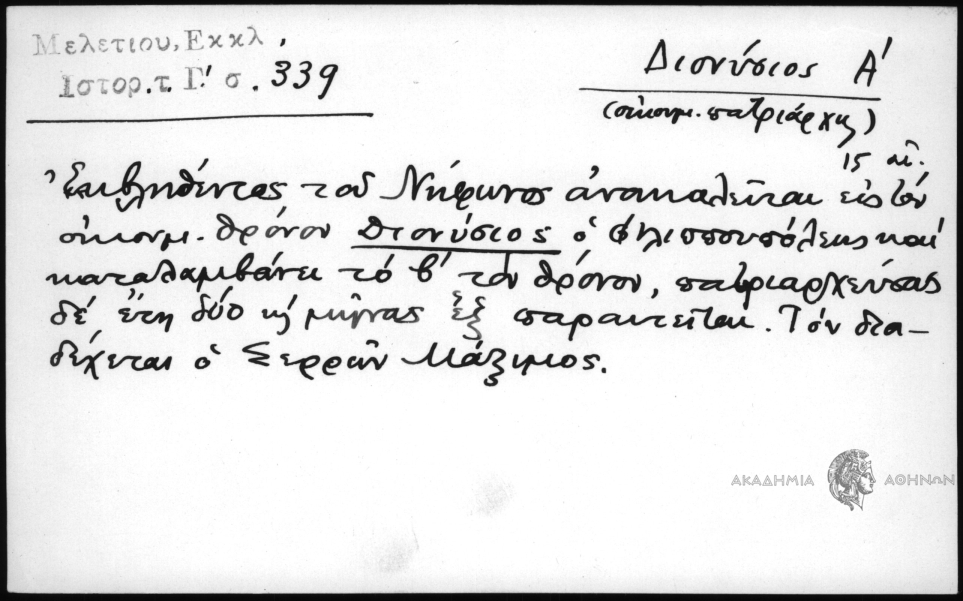 Μελετιου, Εκκλ.
Ιστορ. τ. Γ! σ. 339
Διονύσιος Α'
(οἰκουμ. πατριάρχης)
15 αἰ.
Ἐκβληθέντος τοῦ Νήφωνος ἀνακαλεῖται εἰς τόν
οἰκουμ. θρόνον Διονύσιος ὁ Φιλιππουπόλεως καί
καταλαμβάνει τό β' τόν θρόνον, πατριαρχεύσας
δέ ἔτη δύο κ' μῆνας ἕξ παραιτεῖται. Τόν δια-
δέχεται ὁ Σερρῶν Μάξιμος.
ΑΚΑΔΗΜΙΑ ΑΘΗΝΩΝ